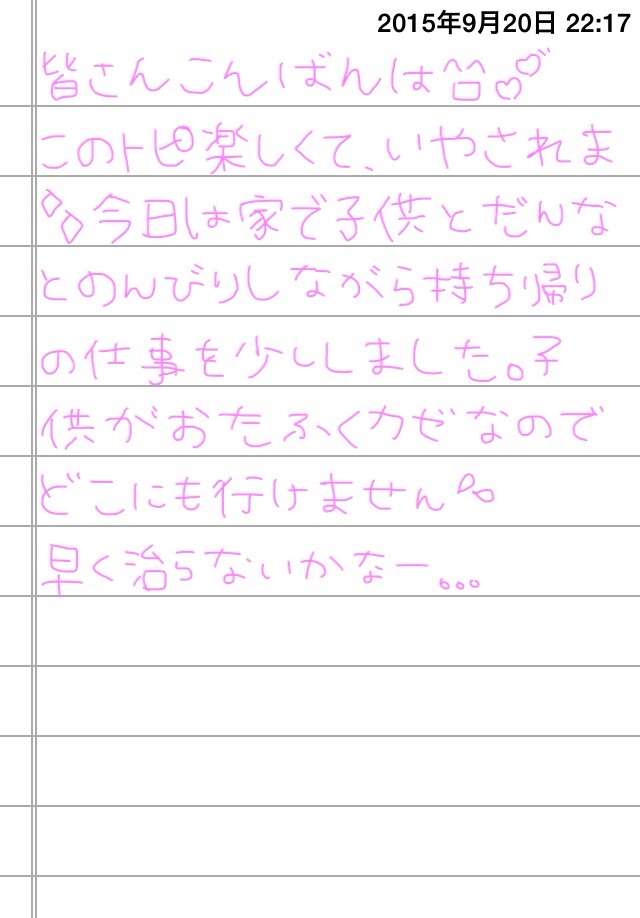 2015年9月20日 22:17
皆さんこんばんは^^♡♡
このトピ楽しくて、いやされま
今日は家で子供とだんな
とのんびりしながら持ち帰り
の仕事を少ししました。子
供がおたふくカゼなので
どこにも行けません
早く治らないかなー...